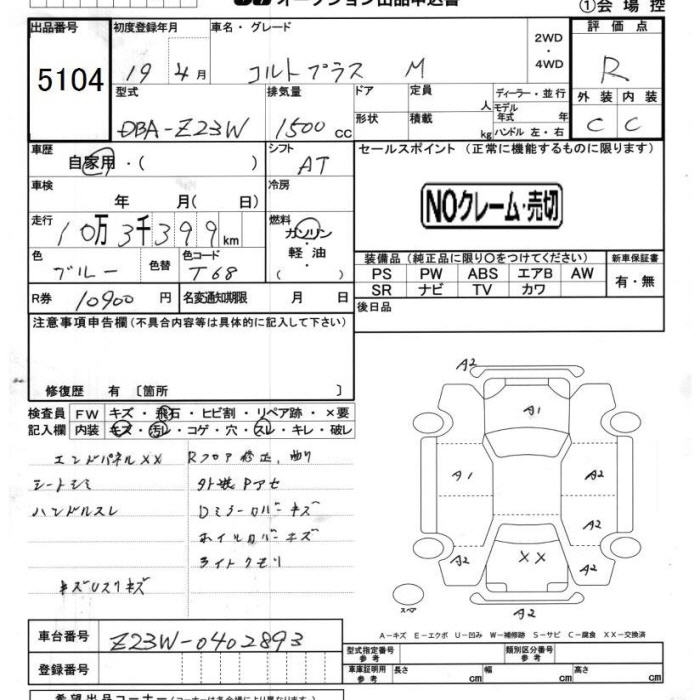 オークション出品申込書
①会場控
出品番号
5104
初度登録年月
19 4月
車名・グレード
コルトプラス M
2WD
・
4WD
評価点
R
外装 内装
C C
型式
DBA-Z23W
排気量
1500 cc
ドア
形状
定員
人
積載
kg
ディーラー・並行
モデル
年式 年
ハンドル 左・右
車歴
自家用・( )
シフト
AT
セールスポイント (正常に機能するものに限ります)
NOクレーム・売切
車検
年 月( 日)
冷房
走行
10万3千399km
燃料
ガソリン
・
軽油
( )
色
ブルー
色替
色コード
T68
装備品 (純正品に限り〇をつけてください)
新車保証書
PS PW ABS エアB AW
SR ナビ TV カワ
有・無
R券 10900円
名変通知期限 月 日
後日品
注意事項申告欄 (不具合内容等は具体的に記入して下さい)
修復歴 有 〔箇所 〕
検査員
記入欄
FW キズ・飛石・ヒビ割・リペア跡・×要
内装 キズ・汚レ・コゲ・穴・スレ・キレ・破レ
エンドパネルXX Rフロア修正、曲り
シートシミ
外装Pアセ
ハンドルスレ
Dミラーカバーキズ
ホイルカバーキズ
ライトクモリ
キズUスリキズ
A2
A1
A1
A2
A2
A2
XX
A2
A2
スペア
A-キズ E-エクボ U-凹み W-補修跡 S-サビ C-腐食 XX-交換済
車台番号
Z23W-0402893
登録番号
型式指定番号
参考
類別区分番号
参考
車庫証明用
参考
長さ cm 幅 cm 高さ cm
希望出品コーナー